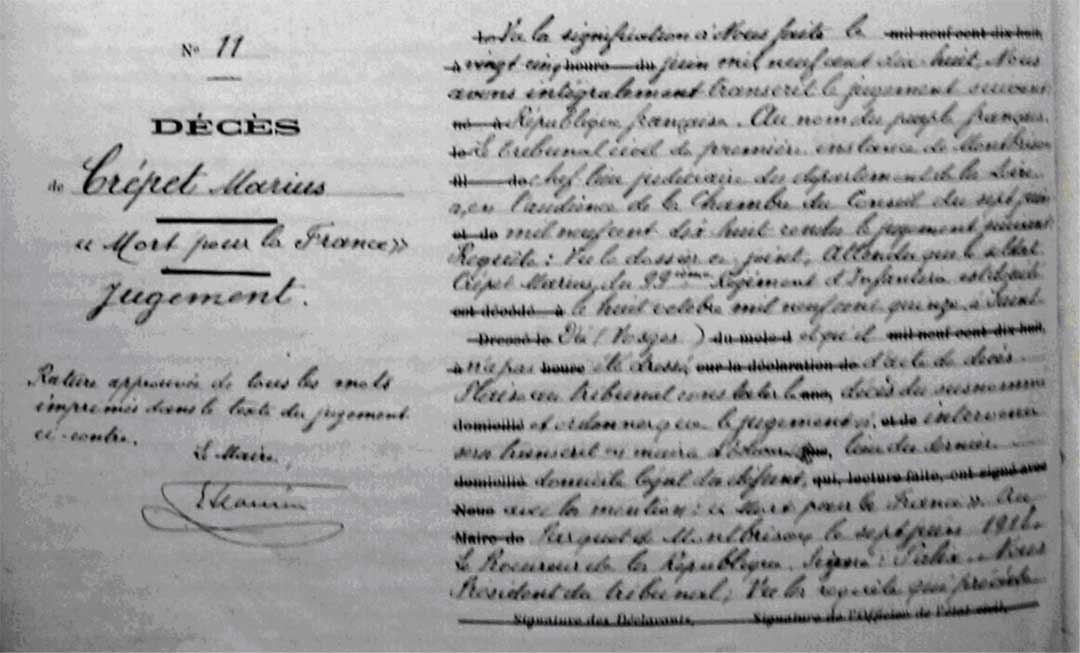 N° 11
DÉCÈS
de Crépet Marius
« Mort pour la France »
Jugement.
Rature approuvée de tous les mots
imprimés dans le texte du jugement
ci-contre.
Le Maire,
Le Vu la signification à Nous faite le mil neuf cent dix huit,
à vingt cinq heure du juin mil neuf cent dix huit, Nous
avons intégralement transcrit le jugement suivant
né à République française. Au nom du peuple français.
Le tribunal civil de première instance de Montbrison
chef lieu judiciaire du département de la Loire
a, en l'audience de la Chambre du Conseil du sept juin
et de mil neuf cent dix huit rendu le jugement suivant
Requête : Vu le dossier ci joint, Attendu que le soldat
Crépet Marius, du 99ième Régiment d'Infanterie est décédé
est décédé à le huit octobre mil neuf cent quinze à Saint
Dressé le Dié (Vosges) du mois d et qu'il mil neuf cent dix huit,
à n'a pas heure été dressé, sur la déclaration de d'acte de décès.
Plaise au tribunal constater le ans, décès du susnommé
domicilié et ordonner que le jugement à et de intervenir
sera transcrit en mairie lieu du dernier
domicilié domicile légal du défunt, qui, lecture faite, ont signé avec
Nous avec la mention : « Mort pour la France ». Au
Maire de Parquet de Montbrison le sept juin 1918.
Le Procureur de la République. Signé : Nous
Président du tribunal, Vu la requête qui précède
Signature des Déclarants, Signature de l'Officier de l'état civil,